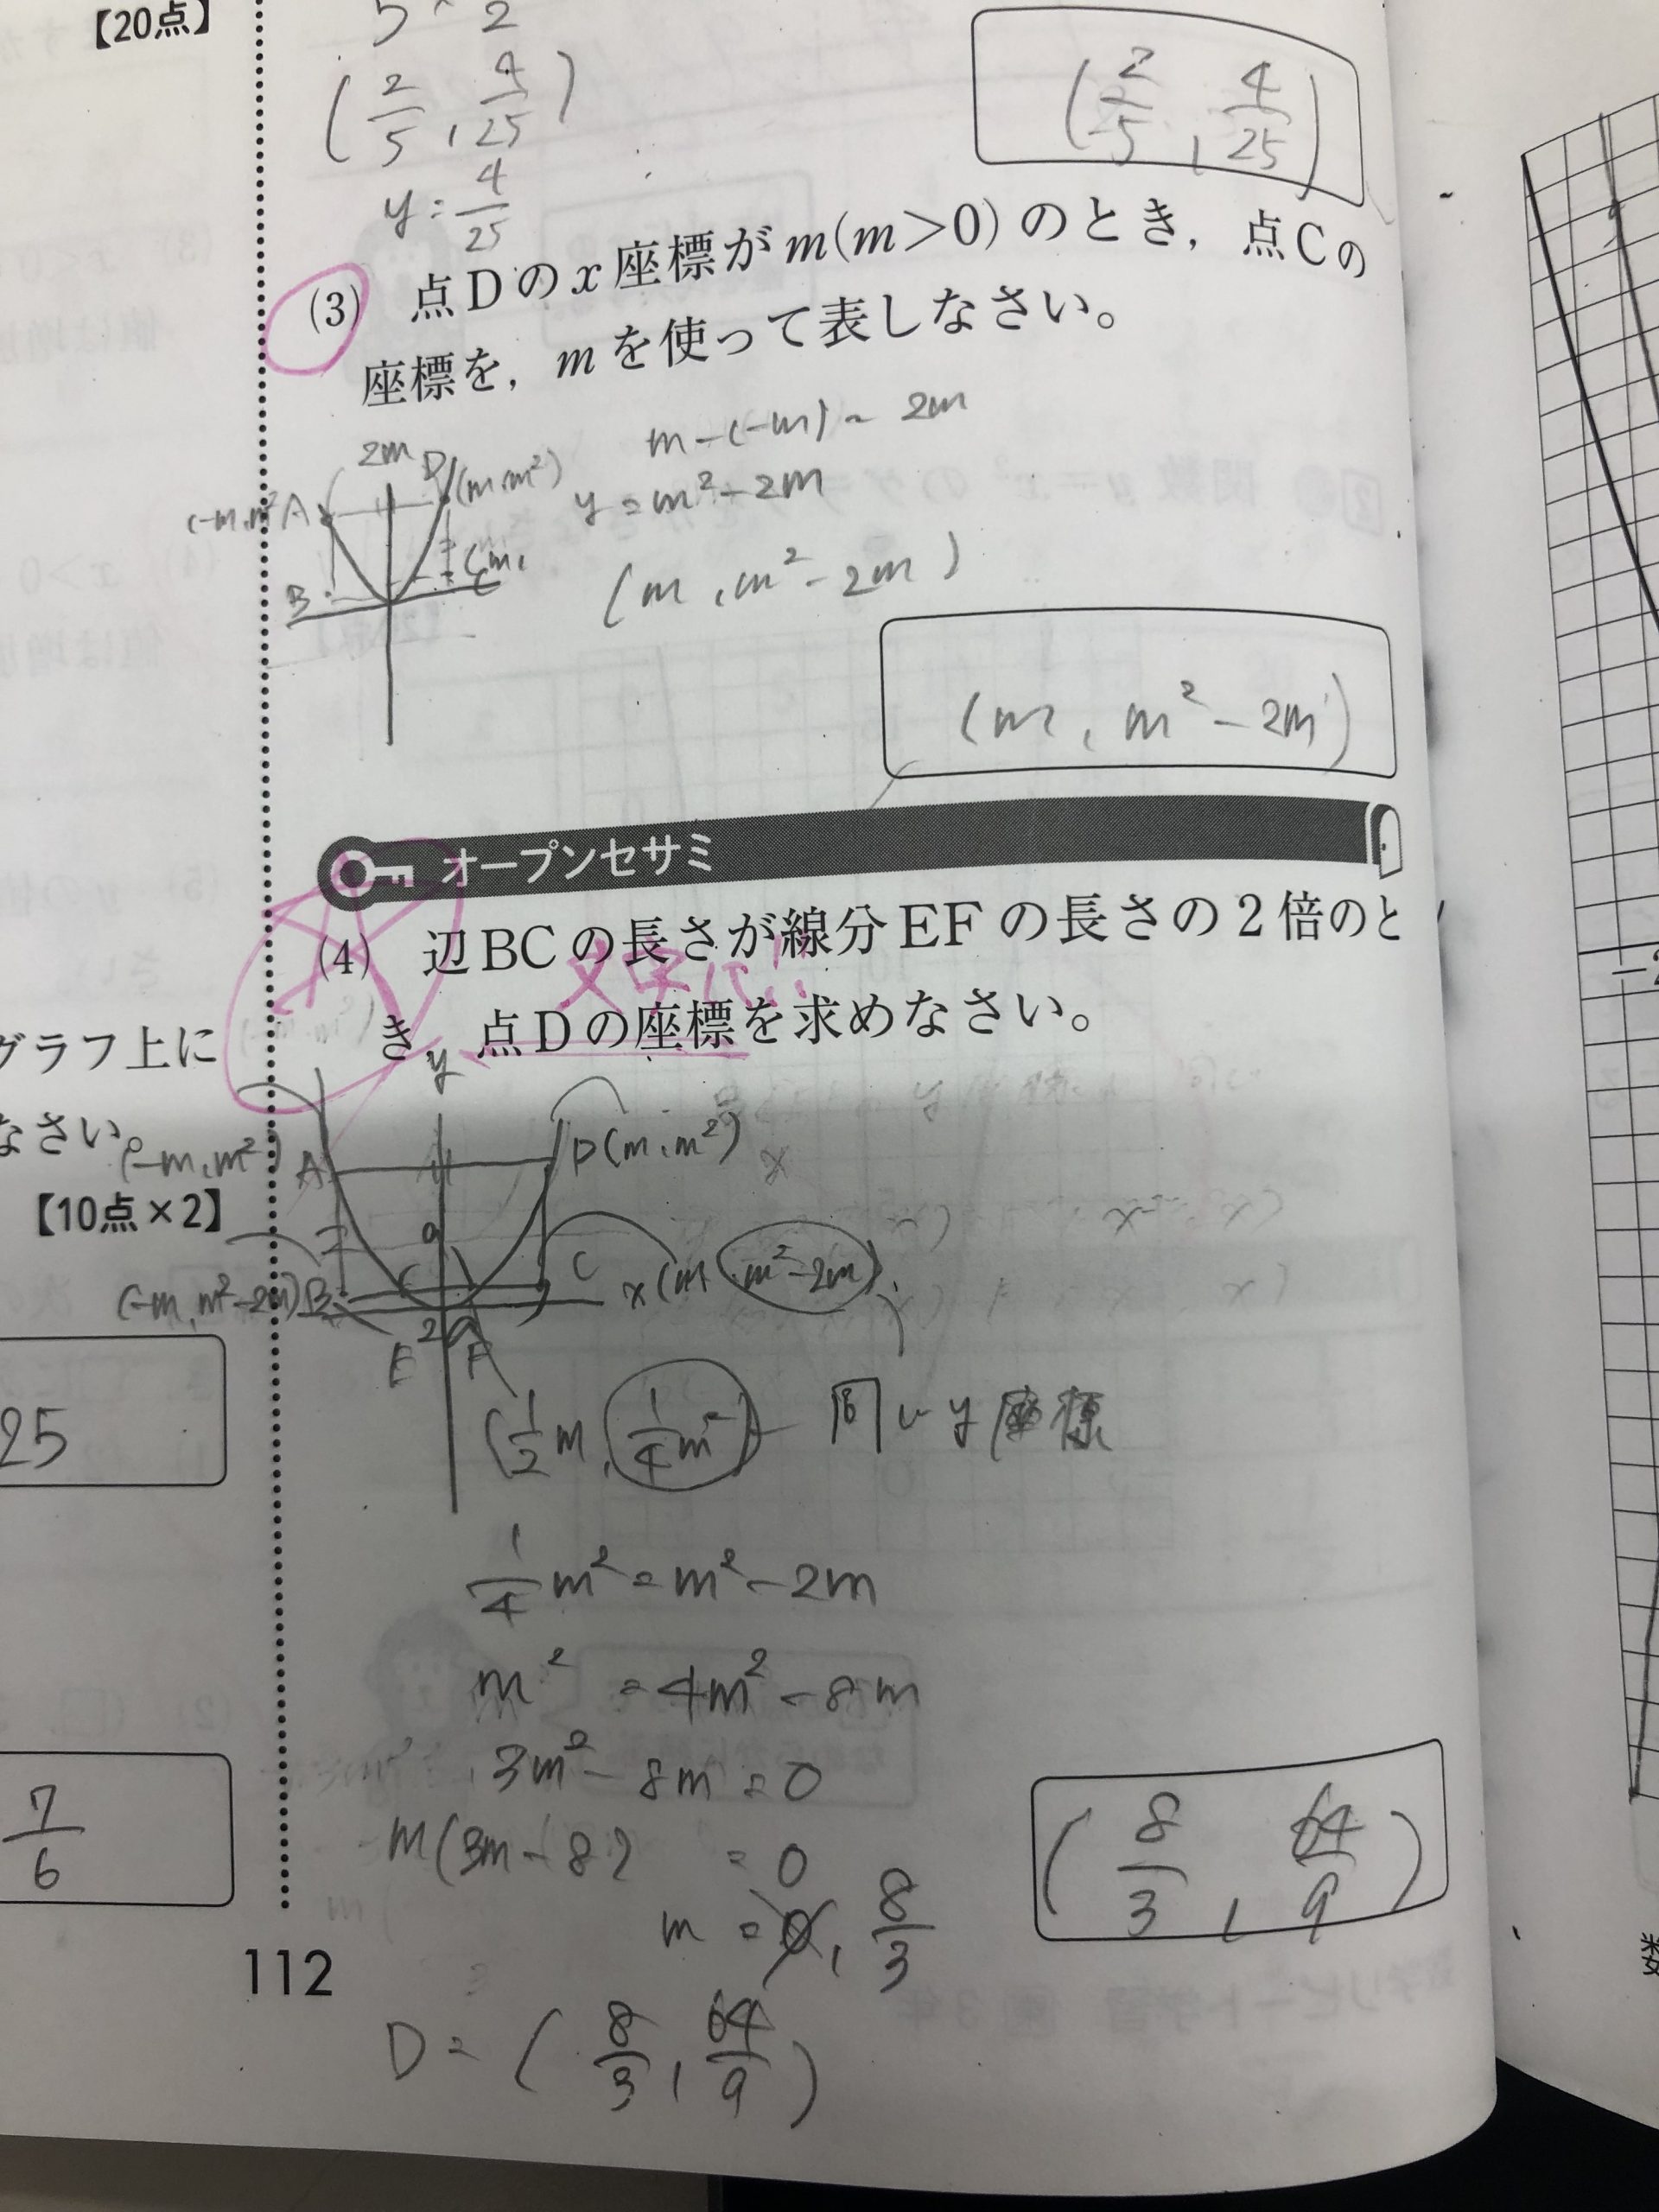 【20点】
(2/5, 4/25)
(2/5, 4/25)
y=4/25
(3) 点Dのx座標がm(m>0)のとき, 点Cの
座標を, mを使って表しなさい。
m-(-m)=2m
2m D(m,m²)
(-m,m² A
y=m²-2m
B
C
(m,
(m, m²-2m)
(m, m²-2m)
オープンセサミ
(4) 辺BCの長さが線分EFの長さの2倍のと
文字に!!
き, 点Dの座標を求めなさい。
グラフ上に
なさい。
y
(-m,m²) A
D(m,m²)
【10点×2】
C
(-m, m²-2m) B
x (m, m²-2m)
E
F
(1/2m, 1/4m²) 同じy座標
25
1/4m²=m²-2m
m²=4m²-8m
3m²-8m=0
m(3m-8)=0
7/6
m=0, 8/3
(8/3, 64/9)
112
D=(8/3, 64/9)
-2
数